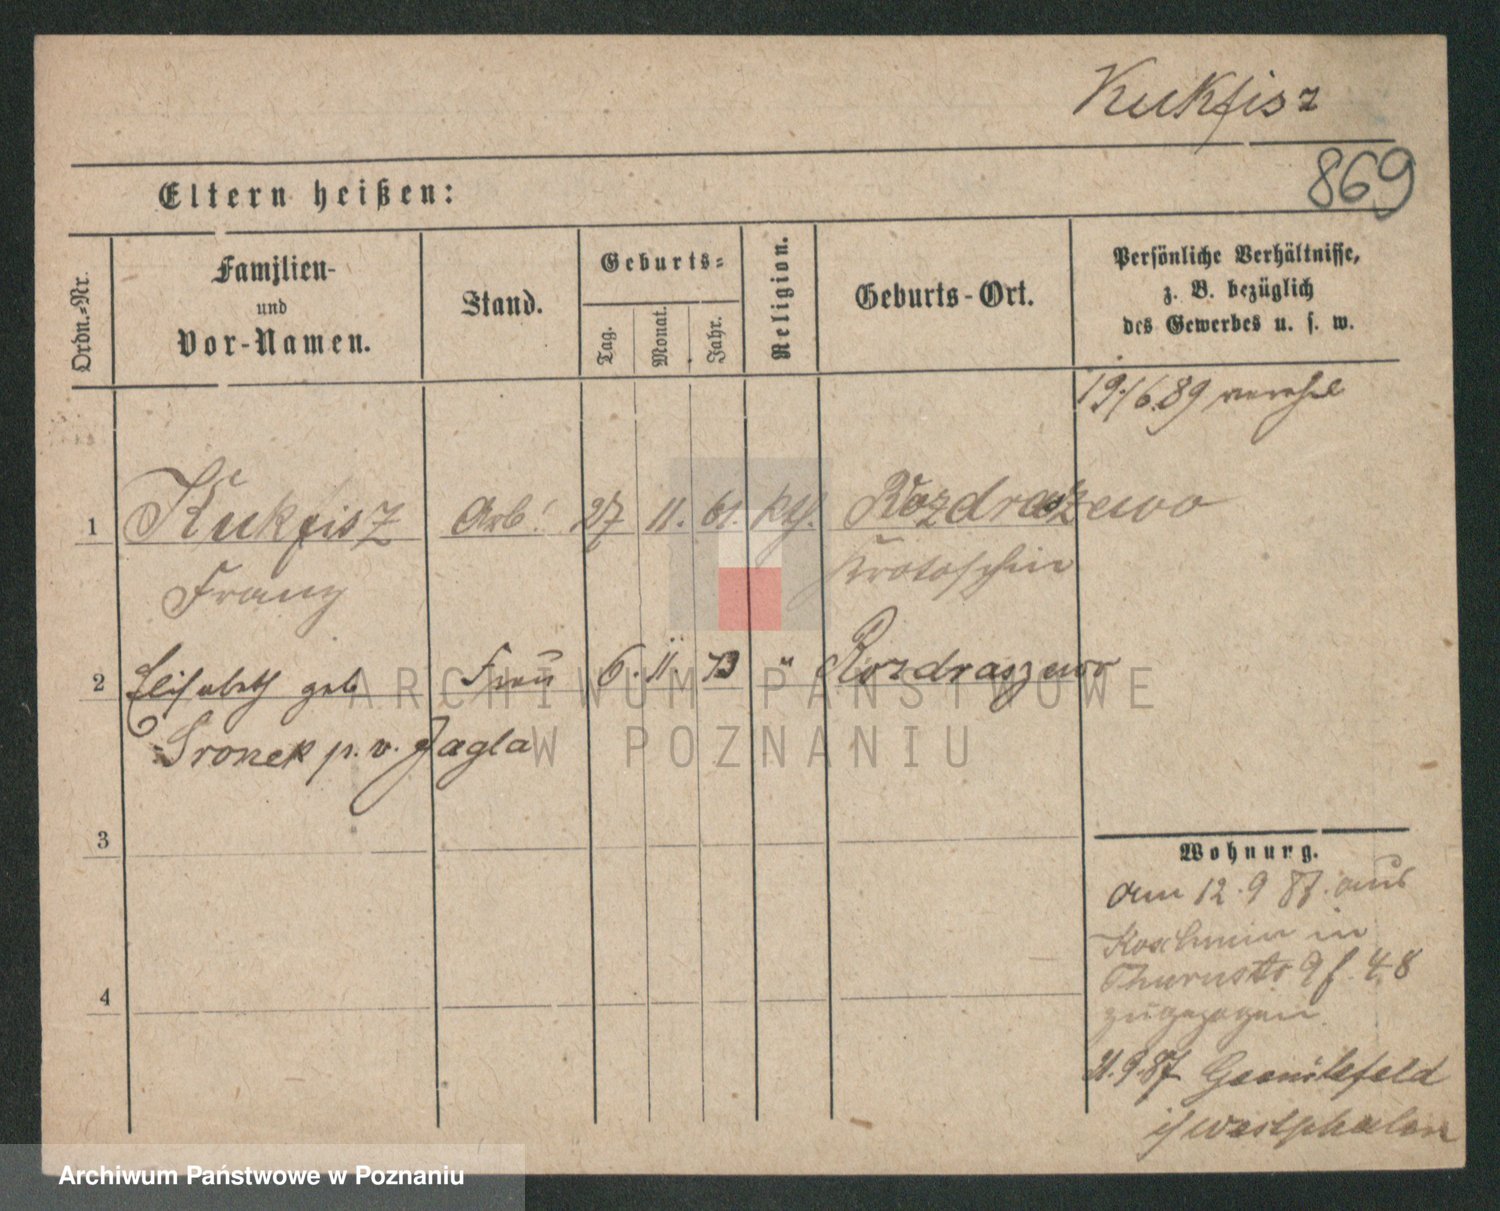 Kukfisz
869
Eltern heißen:
Ordn.-Nr.
Familien-
und
Vor-Namen.
Stand.
Geburts-
Tag.
Monat.
Jahr.
Religion.
Geburts-Ort.
Persönliche Verhältnisse,
z. B. bezüglich
des Gewerbes u. s. w.
19/6.89 verehel
1 Kukfisz Arb. 27 11. 61. kth. Rozdrazewo
Franz Krotoschin
2 Elisabeth geb Frau 6. 11. 73 " Rozdraszewo
Sronek p. v. Jagla
3
4
Wohnung.
am 12. 9 87. aus
Koschmin in
Thurmstr 9 f. 4.8
zugezogen
21.9.87
i/ Westphalen
ARCHIWUM PAŃSTWOWE
W POZNANIU
Archiwum Państwowe w Poznaniu